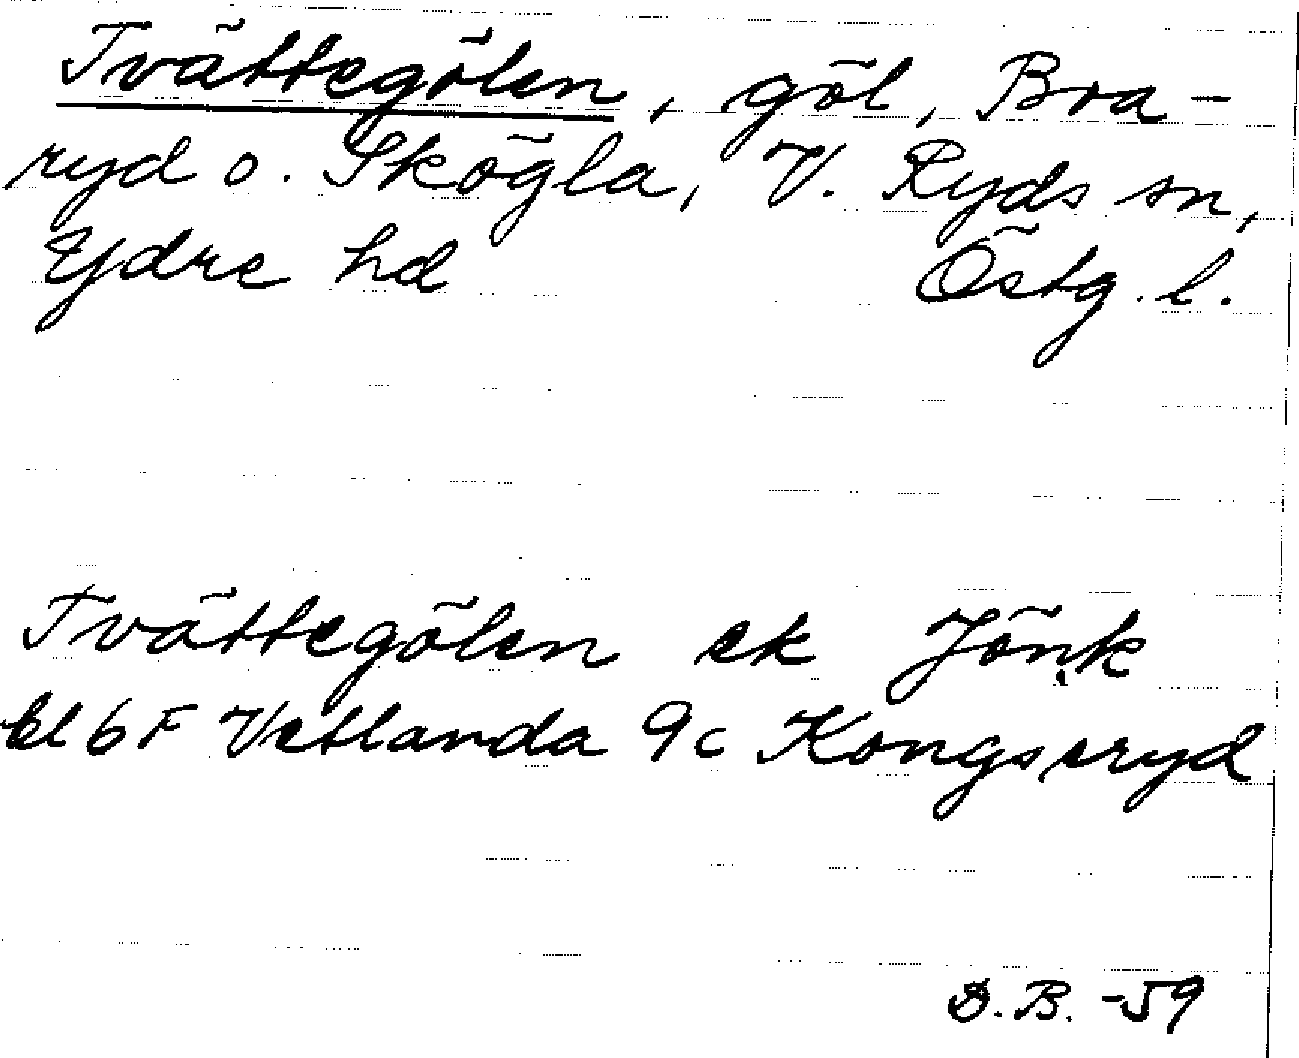 Tvättegölen, göl, Bra-
ryd o. Skögla, V. Ryds sn,
Ydre hd Östg. l.
Tvättegölen ek Jönk
bl 6 F Vetlanda 9c Kongseryd
D.B. -59